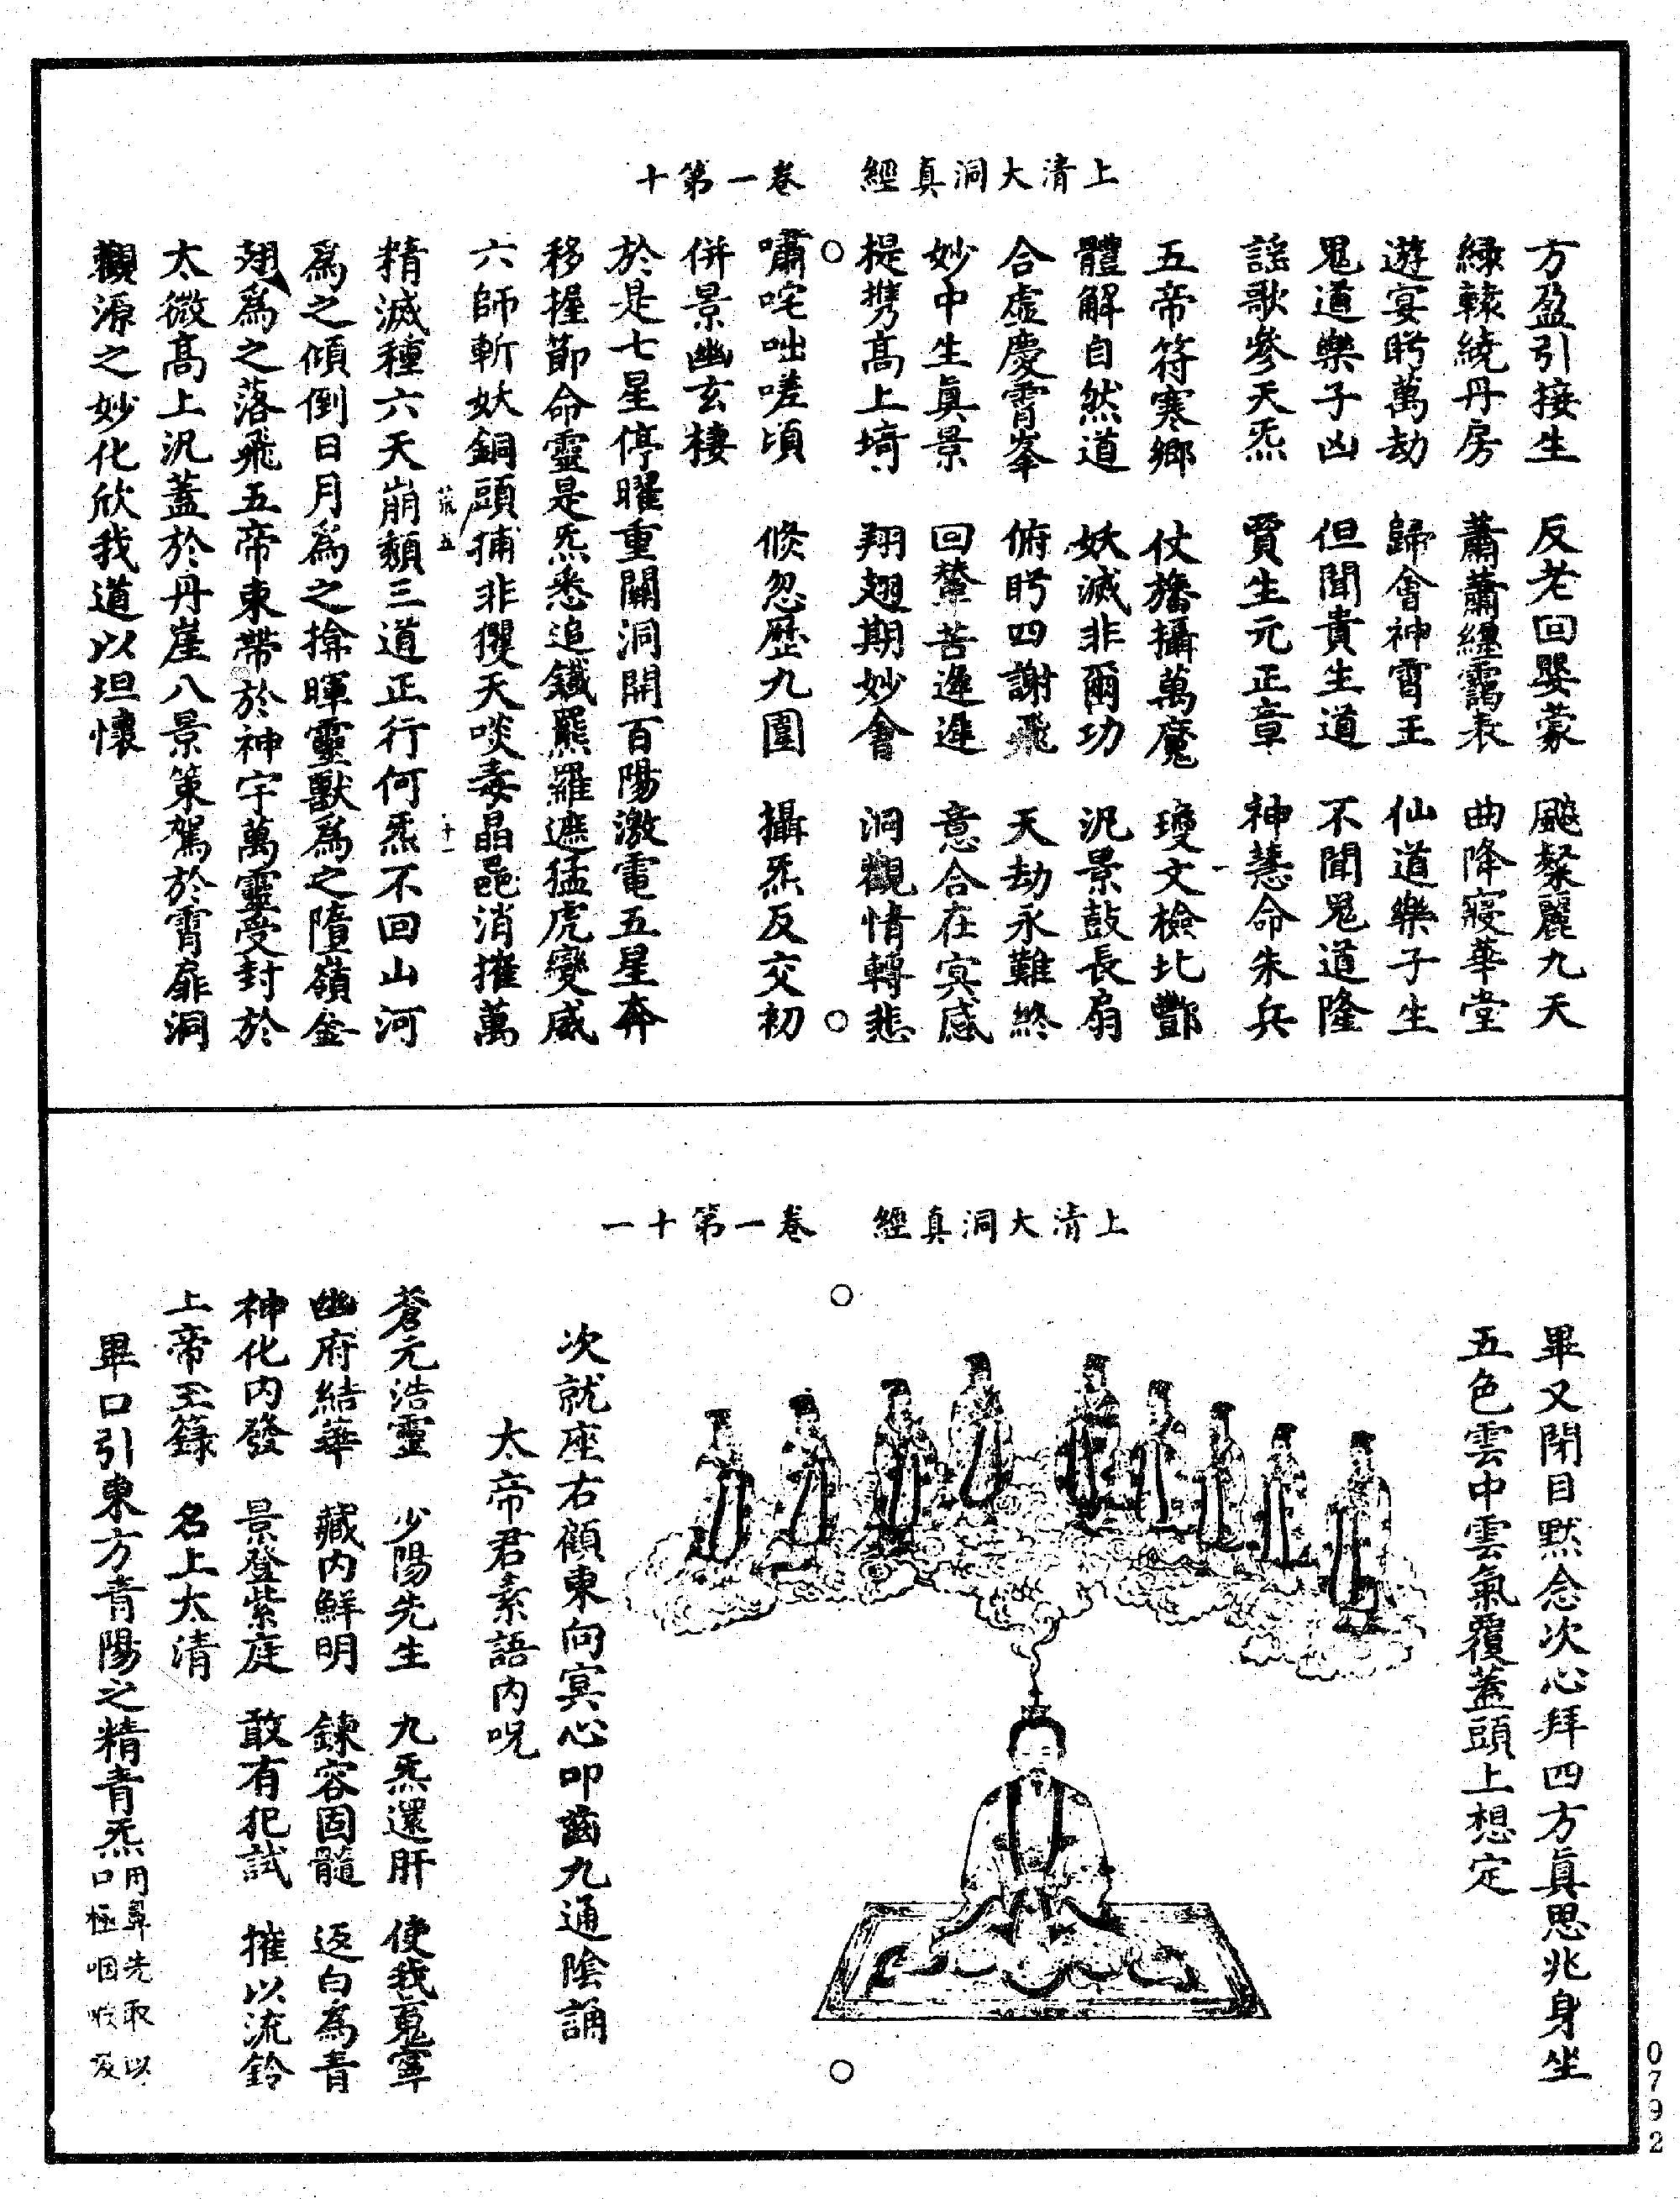 上清大洞真經　卷一第十
方盈引接生　反老回嬰蒙　颰粲麗九天
緑轅繞丹房　蕭蕭纏靄表　曲降寢華堂
遊宴眄萬劫　歸會神霄王　仙道樂子生
鬼道樂子凶　但聞貴生道　不聞鬼道隆
謡歌參天炁　賈生元正章　神慧命朱兵
五帝符寒鄉　仗旛攝萬魔　瓊文檢北酆
體解自然道　妖滅非爾功　汎景鼓長扇
合虚慶霄峯　俯眄四謝飛　天劫永難終
妙中生真景　回輦苦遲遲　意合在冥感
提携高上埼　翔翅期妙會　洞觀情轉悲
嘯咤咄嗟頃　倏忽歷九圍　攝炁反交初
併景幽玄棲
於是七星停曜重關洞開百陽激電五星奔
移握節命靈是炁悉追鐵羆羅遮猛虎變威
六師斬妖銅頭捕非玃天啖毒晶邑消摧萬
精滅種六天崩頹三道正行何炁不回山河
爲之傾倒日月爲之揜暉靈獸爲之隳嶺金
翅爲之落飛五帝束帶於神宇萬靈受封於
太微高上汎蓋於丹崖八景策駕於霄扉洞
觀源之妙化欣我道以坦懷
上清大洞真經　卷一第十一
畢又閉目默念次心拜四方真思兆身坐
五色雲中雲氣覆蓋頭上想定
次就座右顧東向冥心叩齒九通陰誦
太帝君素語内呪
蒼元浩靈　少陽先生　九炁還肝　使我䰟寧
幽府結華　藏内鮮明　鍊容固髓　返白為青
神化内發　景登紫庭　敢有犯試　摧以流鈴
上帝玉籙　名上太清
畢口引東方青陽之精青炁用鼻先取以口極咽
0792